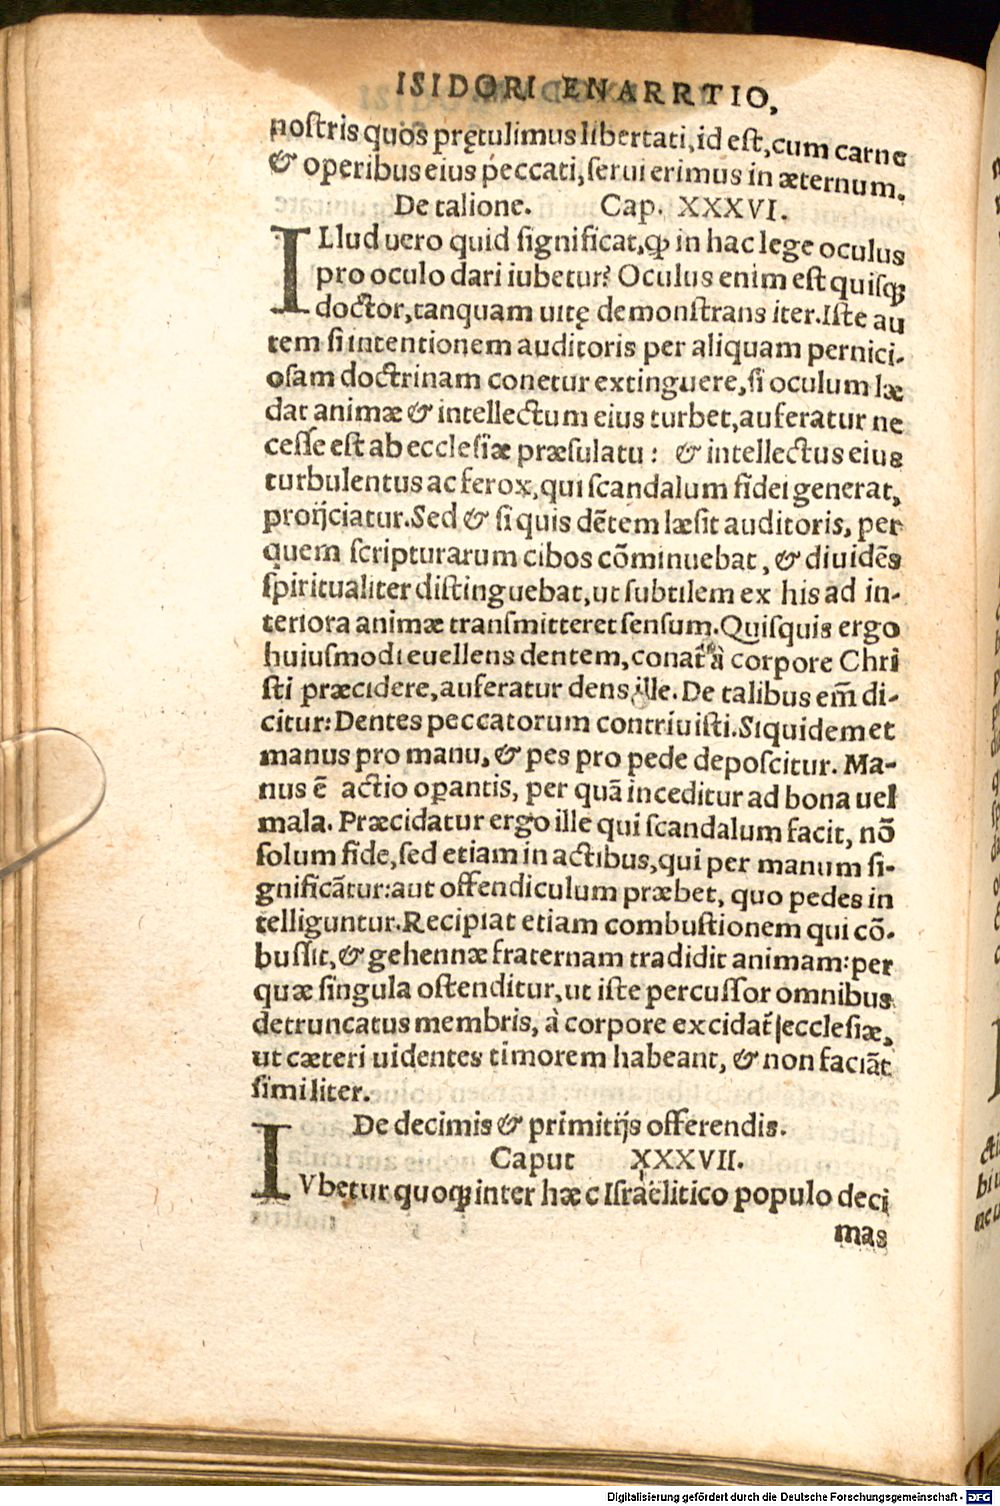 ISIDORI ENARRTIO,
noſtris quos prętulimus libertati, id eſt, cum carne
& operibus eius peccati, ſerui erimus in æternum.
De talione. Cap. XXXVI.
ILlud uero quid ſignificat, ꝙ in hac lege oculus
pro oculo dari iubetur? Oculus enim eſt quiſꝗ
doctor, tanquam uitę demonſtrans iter. Iſte au
tem ſi intentionem auditoris per aliquam pernici-
oſam doctrinam conetur extinguere, ſi oculum læ
dat animæ & intellectum eius turbet, auferatur ne
ceſſe eſt ab eccleſiæ præſulatu: & intellectus eius
turbulentus ac ferox, qui ſcandalum fidei generat,
proijciatur. Sed & ſi quis dētem læſit auditoris, per
quem ſcripturarum cibos cōminuebat, & diuidēs
ſpiritualiter diſtinguebat, ut ſubtilem ex his ad in-
teriora animæ tranſmitteret ſenſum. Quiſquis ergo
huiuſmodi euellens dentem, conat̃ à corpore Chri
ſti præcidere, auferatur dens ille. De talibus em̃ di-
citur: Dentes peccatorum contriuiſti. Siquidem et
manus pro manu, & pes pro pede depoſcitur. Ma-
nus ē actio oꝑantis, per quā inceditur ad bona uel
mala. Præcidatur ergo ille qui ſcandalum facit, nō
ſolum fide, ſed etiam in actibus, qui per manum ſi-
gnificātur: aut offendiculum præbet, quo pedes in
telliguntur. Recipiat etiam combuſtionem qui cō-
buſſit, & gehennæ fraternam tradidit animam: per
quæ ſingula oſtenditur, ut iſte percuſſor omnibus
detruncatus membris, à corpore excidat̃ eccleſiæ,
ut cæteri uidentes timorem habeant, & non faciāt
ſimiliter.
De decimis & primitijs offerendis.
Caput XXXVII.
IVbetur quoꝗ inter hæc Iſraëlitico populo deci
mas
Digitalisierung gefördert durch die Deutsche Forschungsgemeinschaft - DFG